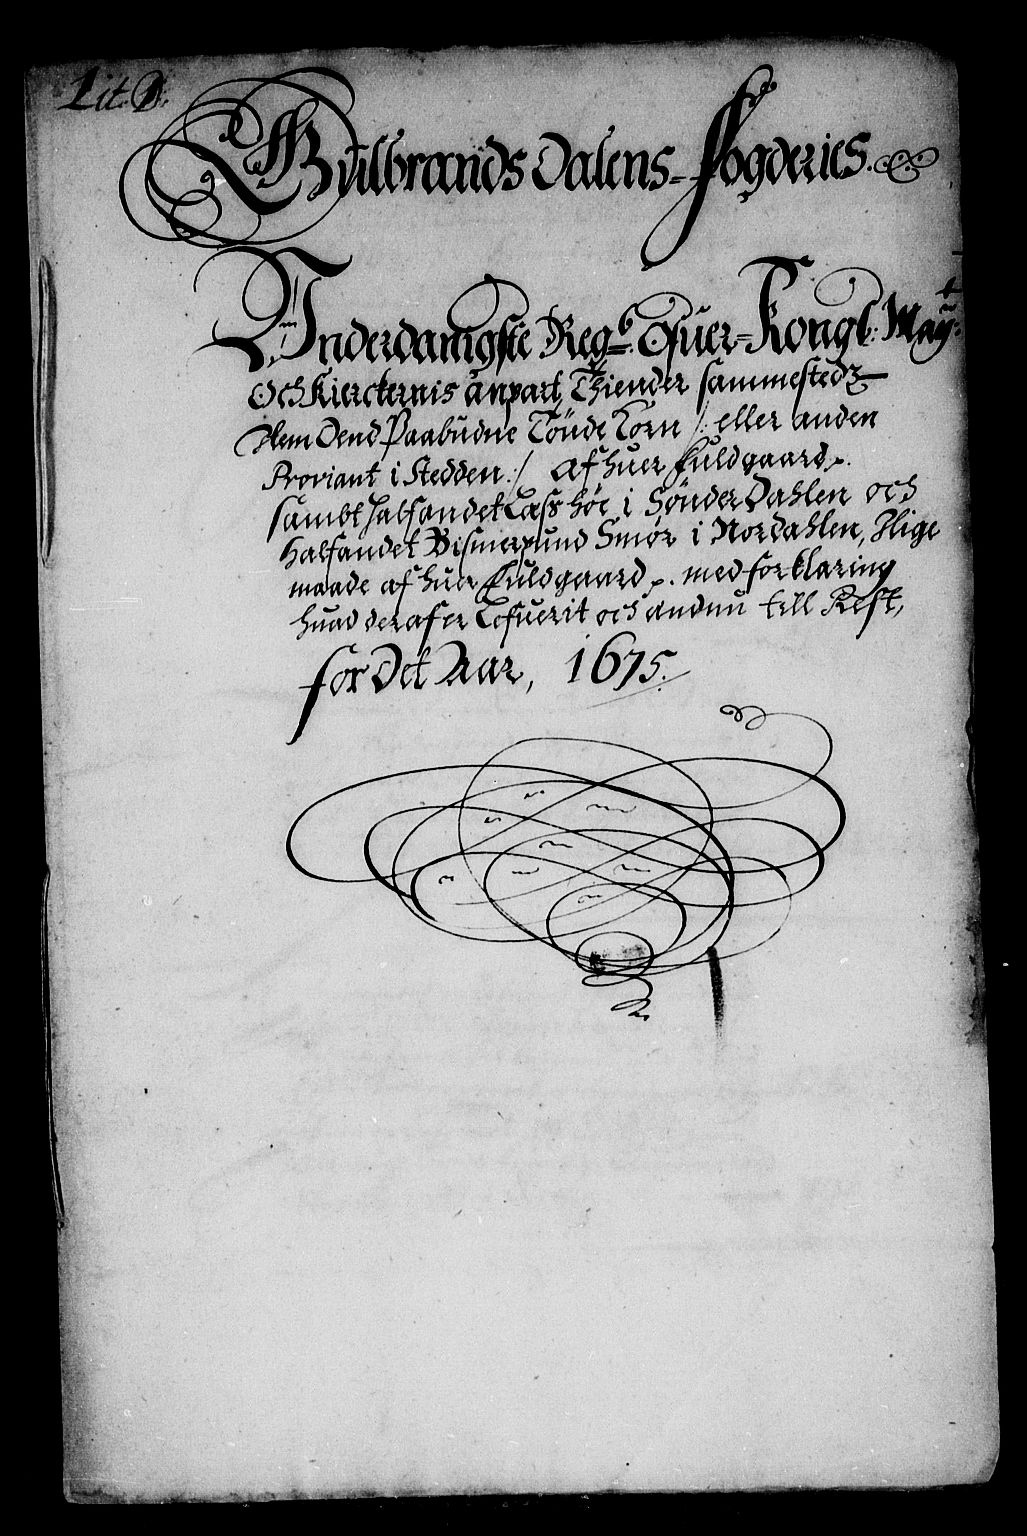 Lit. D.
Gulbrands Dalens Fogderies.
Underdanigste Regb. Ofuer Kongl: Mayt:
Och Kierckernis anpart, Thiender sammestedz
Item Dend Paabudne Tönde Korn /: eller anden
Proviant i Stedden :/ af huer fuldgaard.
sambt halfandet Lass höe i Sönder Dahlen och
halfandet Bismerpund Smör i Nordahlen, Jlige
maade af huer fuldgaard. med forklaring
huad deraf er Lefuerit och andnu till Rest,
for Det Aar, 1675.